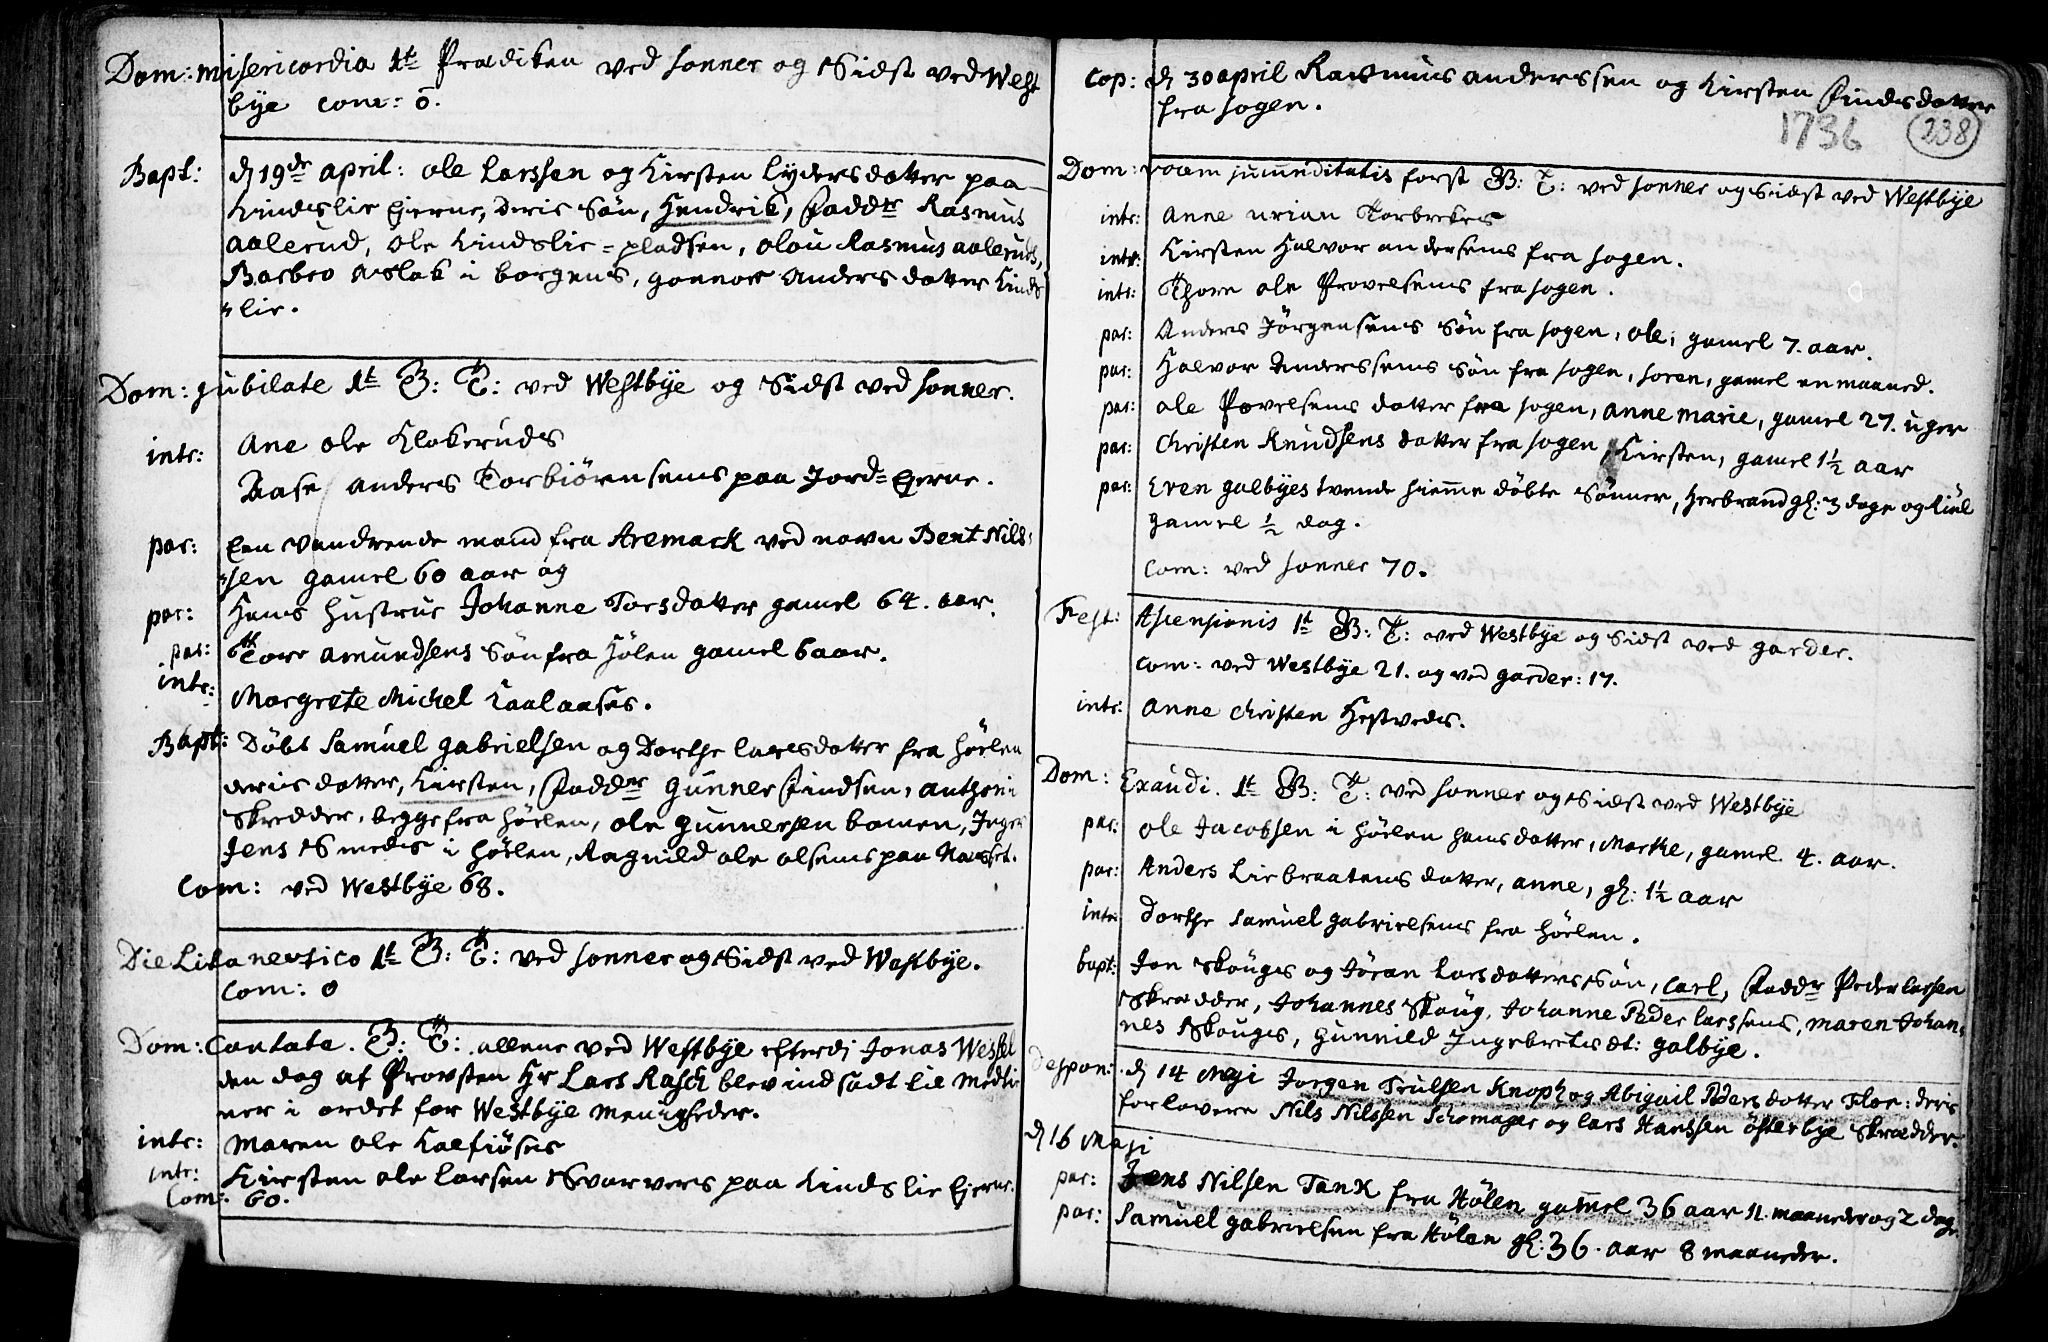 Dom: misericordia 1t Prædiken ved sonner og Sidst ved West
bye com: 0.
Bapt: d 19de april: ole Larssen og Kirsten Lydersdatter paa
Kindslie Eierne, deris Søn, Hendrik, Faddr Rasmus
aalerud, ole Kindslie=pladsen, olou Rasmus aaleruds,
Barbro Aslak i borgens, gonnor Anders datter Kinds
"lie.
Dom: jubilate 1t B: T: ved Westbye og Sidst ved sonner.
intr: Ane ole Klokeruds
Aase anders Torbiörnsens paa Jord=Eierne.
par: Een vandrende mand fra Aremack ved navn Bent Nils:
"sen gamel 60 aar og
par: Hans Hustrue Johanne Torsdatter gamel 64. aar.
par: Tore amundsens Søn fra Hølen gamel 6 aar.
intr: Margrete Michel Kaalaases.
Bapt: Döbt Samuel gabrielsen og Dorthe larsdatter fra Höelen
deris datter, Kirsten, Faddr Gunner Findsen, anthoni
Skredder, begge fra höelen, ole gunnersen bomen, Inger
Jens Smeds i höelen, Ragnild ole olsens paa Næsset.
Com: ved Westbye 68.
Die Litaneutico 1t B: T: ved sonner og Sidst ved Westbye.
Com: 0
Dom: Cantate. B: T: allene ved Westbye efterdj Jonas Wessel
den dag af Provsten Hr Lars Rasch blev indsadt til Medtie
ner i ordet for Westbye Menigheder.
intr: Maren ole Kalfiöses
intr: Kiersten ole larsen Svarvers paa Kindslie Eierne.
Com: 60.
Cop: d 30 april Rasmus anderssen og Kirsten Findsdatter
fra sogen.
1736 238
Dom: vocem jucunditatis forst B: T: ved sonner og Sidst ved Westbye
intr: Anne urian Torbrekes
intr: Kirsten Halvor andersens fra sogen.
intr: Thore ole Provelsens fra sogen.
par: Anders Jörgensens Søn fra sogen, ole, gamel 7. aar.
par: Halvor Anderssens Søn fra sogen, soren, gamel en maaned.
par: ole Povelsens datter fra sogen, anne marie, gamel 27. uger
par: Christen Knudsens datter fra sogen, Kirsten, gamel 1½ aar
par: Even galbyes tvende hieme döbte Sönner, Herbrand gl: 3 dage og Kiel
gamel ½ dag.
Com: ved sonner 70.
Fest: Ascensionis 1t B: T: ved Westbye og Sidst ved garder.
Com: ved Westbye 21. og ved garder: 17.
intr: Anne Christen Hestveds.
Dom: Exaudi. 1t B: T: ved sonner og Sidst ved Westbye
par: ole Jacobsen i höelen hans datter, Marthe, gamel 4. aar.
par: Anders Liebraatens datter, anne, gl: 1½ aar
intr: Dorthe Samuel gabrielsens fra höelen.
bapt: Jon Skouges og Jöran Larsdatters Søn, Carl, Faddr Peder larsen
Skrædder, Johannes Skoug, Johanne Peder larssens, maren Johan,
nes Skouges, gunnild Ingebretsdt: galbye.
Despon: d 14 Maji Jorgen Trulsen Knoph og Abigail Pedersdatter Floe: deris
forlovere Nils Nilssen Schomager og lars Hanssen österbye Skredder.
d 16 Maji
par: Jens Nilsen Tank fra Hölen gamel 36 aar 11. maaneder og 2 dage
par: Samuel gabrielsen fra Hölen gl: 36. aar 8 maaneder.